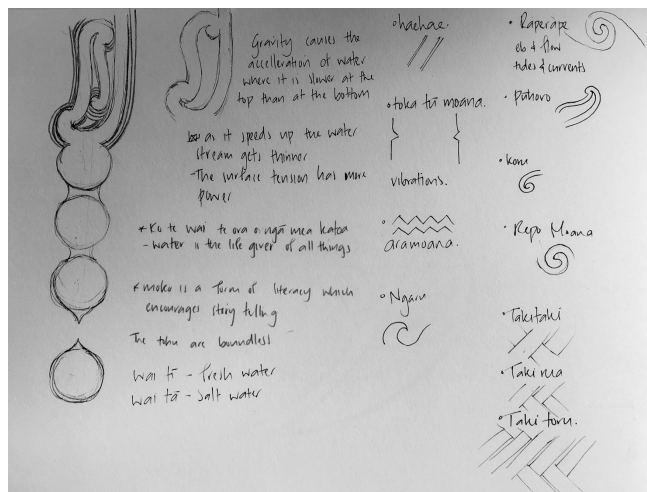 Gravity causes the
accelleration of water
where it is slower at the
top than at the bottom
as it speeds up the water
stream gets thinner
- The surface tension has more
power
* Ko te wai te ora o ngā mea katoa
- water is the life giver of all things
* moko is a form of literacy which
encourages story telling
The tohu are boundless
wai tī - fresh water
wai tā - salt water
• haehae.
• toka tū moana.
vibrations.
• aramoana.
• Ngaru
• Raperape
eb & flow
tides & currents
• Pūhoro
• koru
• Repo Moana
• Takitahi
• Taki rua
• Taki toru.